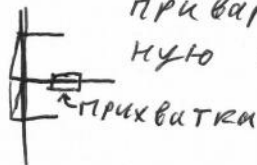 привар
ную
прихватки